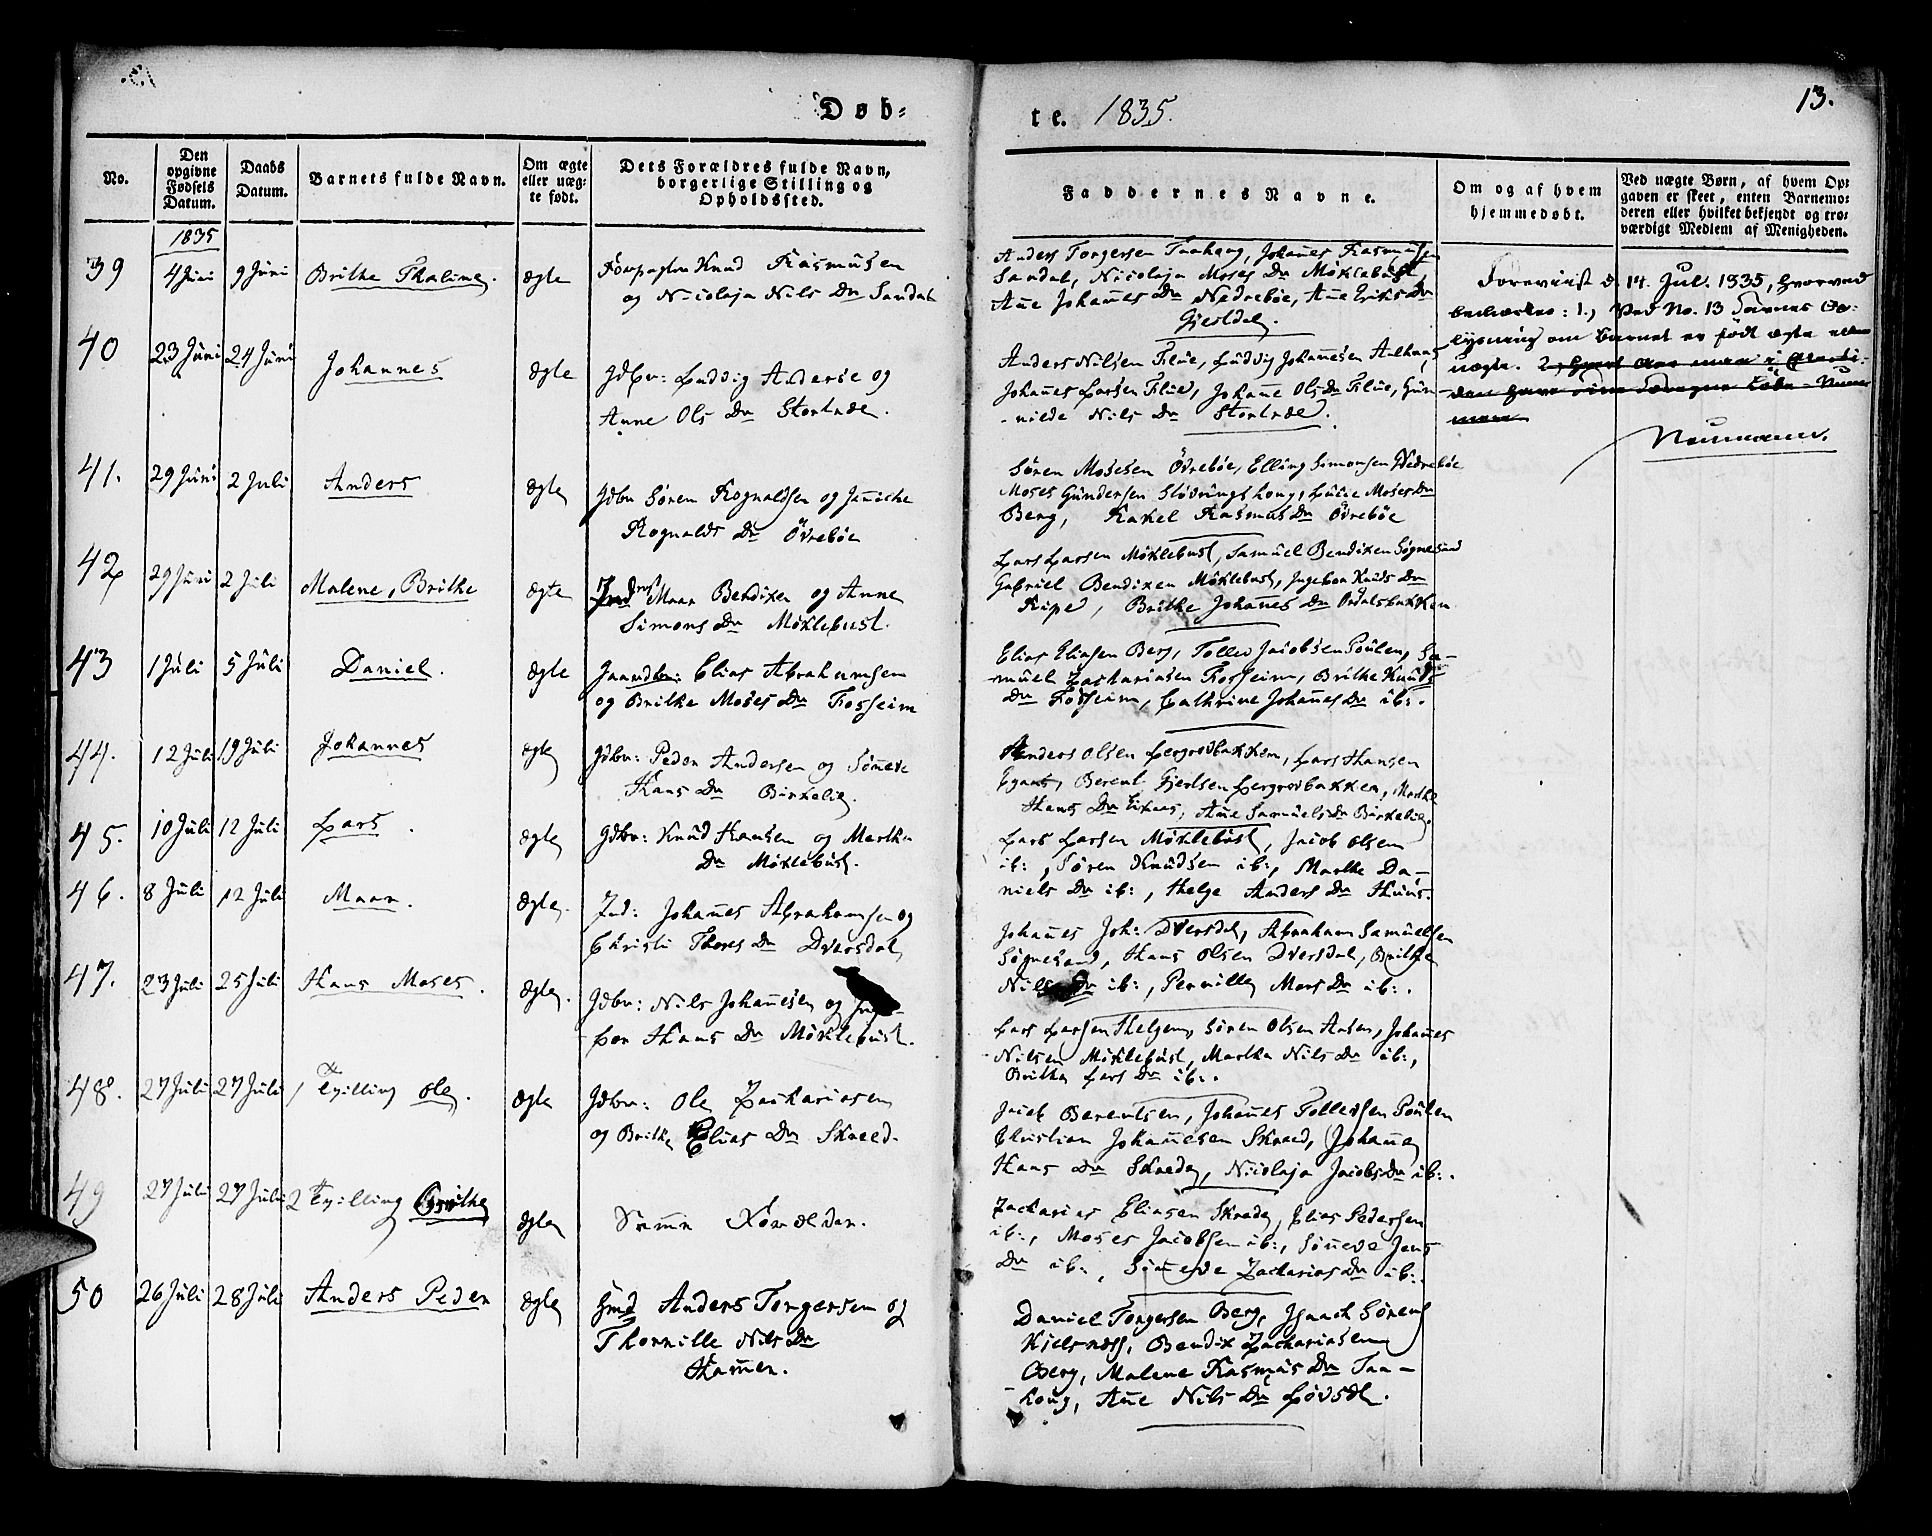 Døb-
te. 1835.
13.
No.
Den opgivne Fødsels Datum.
Daabs Datum.
Barnets fulde Navn.
Om ægte eller uæg- te født.
Dets Forældres fulde Navn, borgerlige Stilling og Opholdssted.
Faddernes Navne.
Om og af hvem hjemmedøbt.
Ved uægte Børn, af hvem Op- gaven er skeet, enten Barnemo- deren eller hvilket bekjendt og tro- værdigt Medlem af Menigheden.
1835
39 4 Juni 9 Juni Brithe Thaline. ægte Knud Rasmusen
og Nicolaja Nils Dr Sandal
Anders Torgersen Johannes Rasmusen
Sandal, Nicolaja Moses Dr Möklebust,
Ane Johannes Dr Nedrebøe, Ane Eriks Dr
Gjesdal.
Foreviist d. 14. Jul. 1835, hvorved
bemærkes: 1.) Ved No. 13 savnes Op-
lysning om Barnet er født ægte eller
uægte.
Neumann.
40 23 Juni 24 Juni Johannes ægte Gdbr: Ludvig Andersø og
Anne Ols Dr Stortræde.
Anders Nilsen Flue, Ludvig Johannesen Aalhuus,
Johannes Larsen Flue, Johanne Ols Dr Flue, Gun-
nilde Nils Dr Stortræde.
41. 29 Juni 2 Juli Anders ægte Gdbr Søren Rognaldsen og Janniche
Rognalds Dr Övrebøe
Søren Mosesen Övrebøe, Elling Simonsen Nedrebøe
Moses Gundersen Lucie Moses Dr
Berg, Rakel Rasmus Dr Övrebøe
42 29 Juni 2 Juli Malene, Brithe ægte Maar Bendixen og Anne
Simons Dr Möklebust.
Lars Larsen Möklebust, Samuel Bendixen Søgnesand
Gabriel Bendixen Möklebust, Ingebor Knuds Dr
Ripe, Brithe Johannes Dr
43 1 Juli 5 Juli Daniel. ægte Elias Abrahamsen
og Brithe Moses Dr Fosseim
Elias Eliasen Berg, Tollev Jacobsen Sa-
muel Zachariasen Fosseim, Brithe Knuds
Dr Fosseim, Cathrine Johannes Dr ib:.
44. 12 Juli 19 Juli Johannes ægte Gdbr: Peder Andersen og Sönneve
Hans Dr Birkelie.
Anders Olsen Lars Hansen
Berent Gjertsen Marthe
Hans Dr Ane Samuels Dr Birkelie.
45. 10 Juli 12 Juli Lars. ægte Gdbr: Knud Hansen og Marthe
Dr Möklebust.
Lars Larsen Möklebust, Jacob Olsen
ib:, Søren Knudsen ib:, Marthe Da-
niels Dr ib:, Helge Anders Dr Huus.
46. 8 Juli 12 Juli Maar. ægte. Ind: Johannes Abrahamsen og
Christi Thores Dr Dversdal
Johannes Joh: Dversdal, Abraham Samuelsen
Søgnesand, Hans Olsen Dversdal, Brithe
Nils Dr ib:, Pernille Mars Dr ib:.
47. 23 Juli 25 Juli Hans Moses. ægte. Gdbr: Nils Johannesen og Inge-
bor Hans Dr Möklebust.
Lars Larsen Helgen, Søren Olsen Aasen, Johannes
Nilsen Möklebust, Marthe Nils Dr ib:,
Brithe Lars Dr ib:.
48. 27 Juli 27 Juli 1 Tvilling Ole. ægte Gdbr: Ole Zachariasen
og Brithe Elias Dr Skreed.
Jacob Berentsen, Johannes Tollevsen
Christian Johannesen Skreed, Johanne
Hans Dr Skrede, Nicolaja Jacobs Dr ib:.
49 27 Juli 27 Juli 2 Tvilling Brithe ægte Samme Forældre.
Zacharias Eliasen Skrede, Elias Pedersen
ib:, Moses Jacobsen ib:, Sönneve Jens
Dr ib:, Sönneve Zacharias Dr ib:.
50 26 Juli 28 Juli Anders Peder ægte Hmd Anders Torgersen og
Thornille Nils Dr
Hammer.
Daniel Torgersen Berg, Isaach Sørens
Kjelsnæs, Bendix Zachariasen
Berg, Malene Rasmus Dr Taa-
houg, Ane Nils Dr Løvsæt.